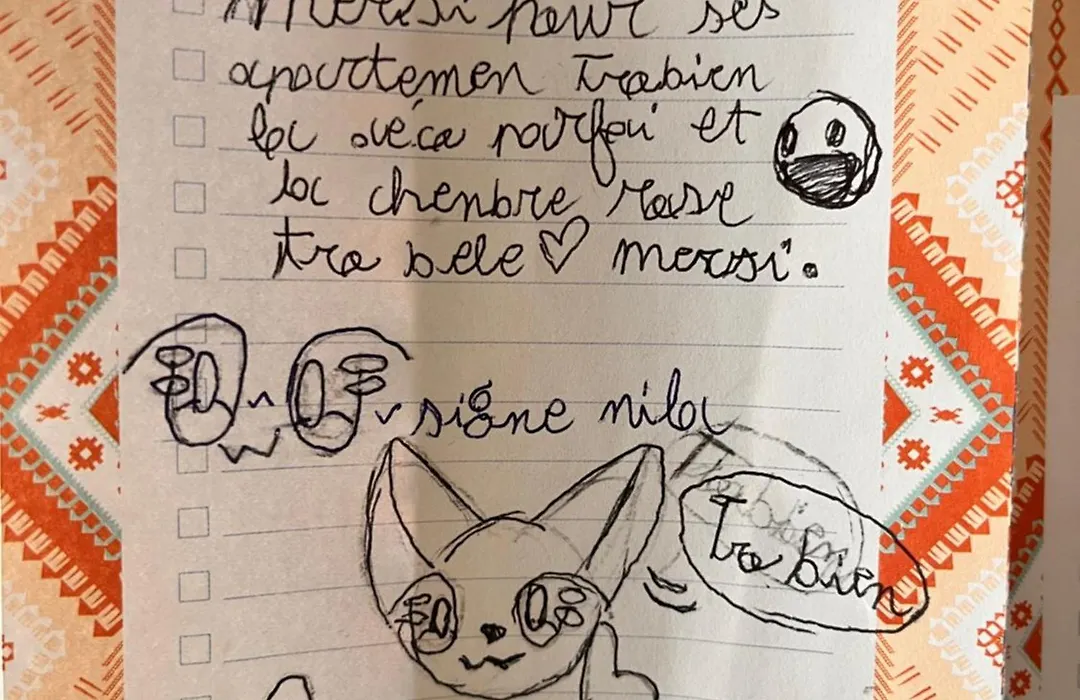 Mersi pour ses
apourtemen trabien
la déca parfai et
la chenbre rose
tra bele ♡ mersi.
signe nila
Tra bien